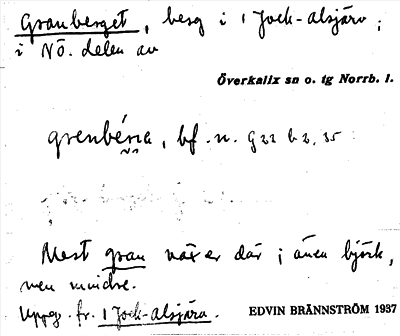 Granberget, berg i 1 Jock-alsjärv;
i NÖ. delen av
Överkalix sn o. tg Norrb. l.
grenbérία, bf. n. G22 b 2, 35.
Mest gran växer där; även björk,
men mindre.
Uppg. fr. 1 Jock-alsjärv.
EDVIN BRÄNNSTRÖM 1937